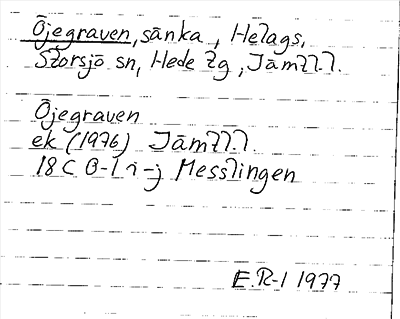 Öjegraven, sänka, Helags,
Storsjö sn, Hede tg, Jämtl.l.
Öjegraven
ek (1976) Jämtl.l.
18C 0-1 i-j Messlingen
E.R-l 1977